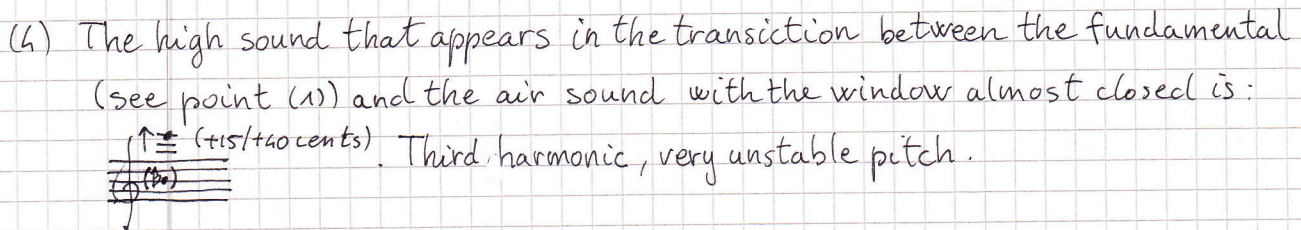 (4) The high sound that appears in the transiction between the fundamental
(see point (1)) and the air sound with the window almost closed is:
(+15/+40 cents). Third harmonic, very unstable pitch.